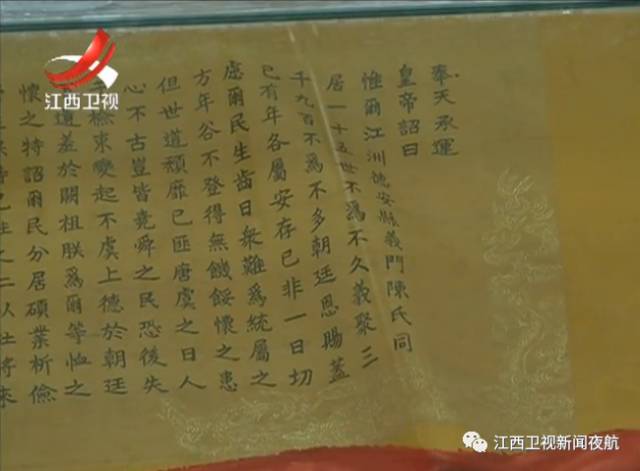 江西卫视
奉天承運
皇帝詔曰
惟爾江洲德安縣義門陳氏同
居一十五世不為不久義聚三
千九百不為不多朝廷恩賜蓋
已有年各屬安存已非一日切
慮爾民生齒日衆難為統屬之
方年谷不登得無饑餒懷之患
但世道頹靡已匪唐虞之日人
心不古豈皆堯舜之民恐後失
檢束變起不虞上德於朝廷
遺羞於祖朕為爾等恤之
懷之特詔爾民分居碩業析儉
二人仕將來
江西卫视新闻夜航